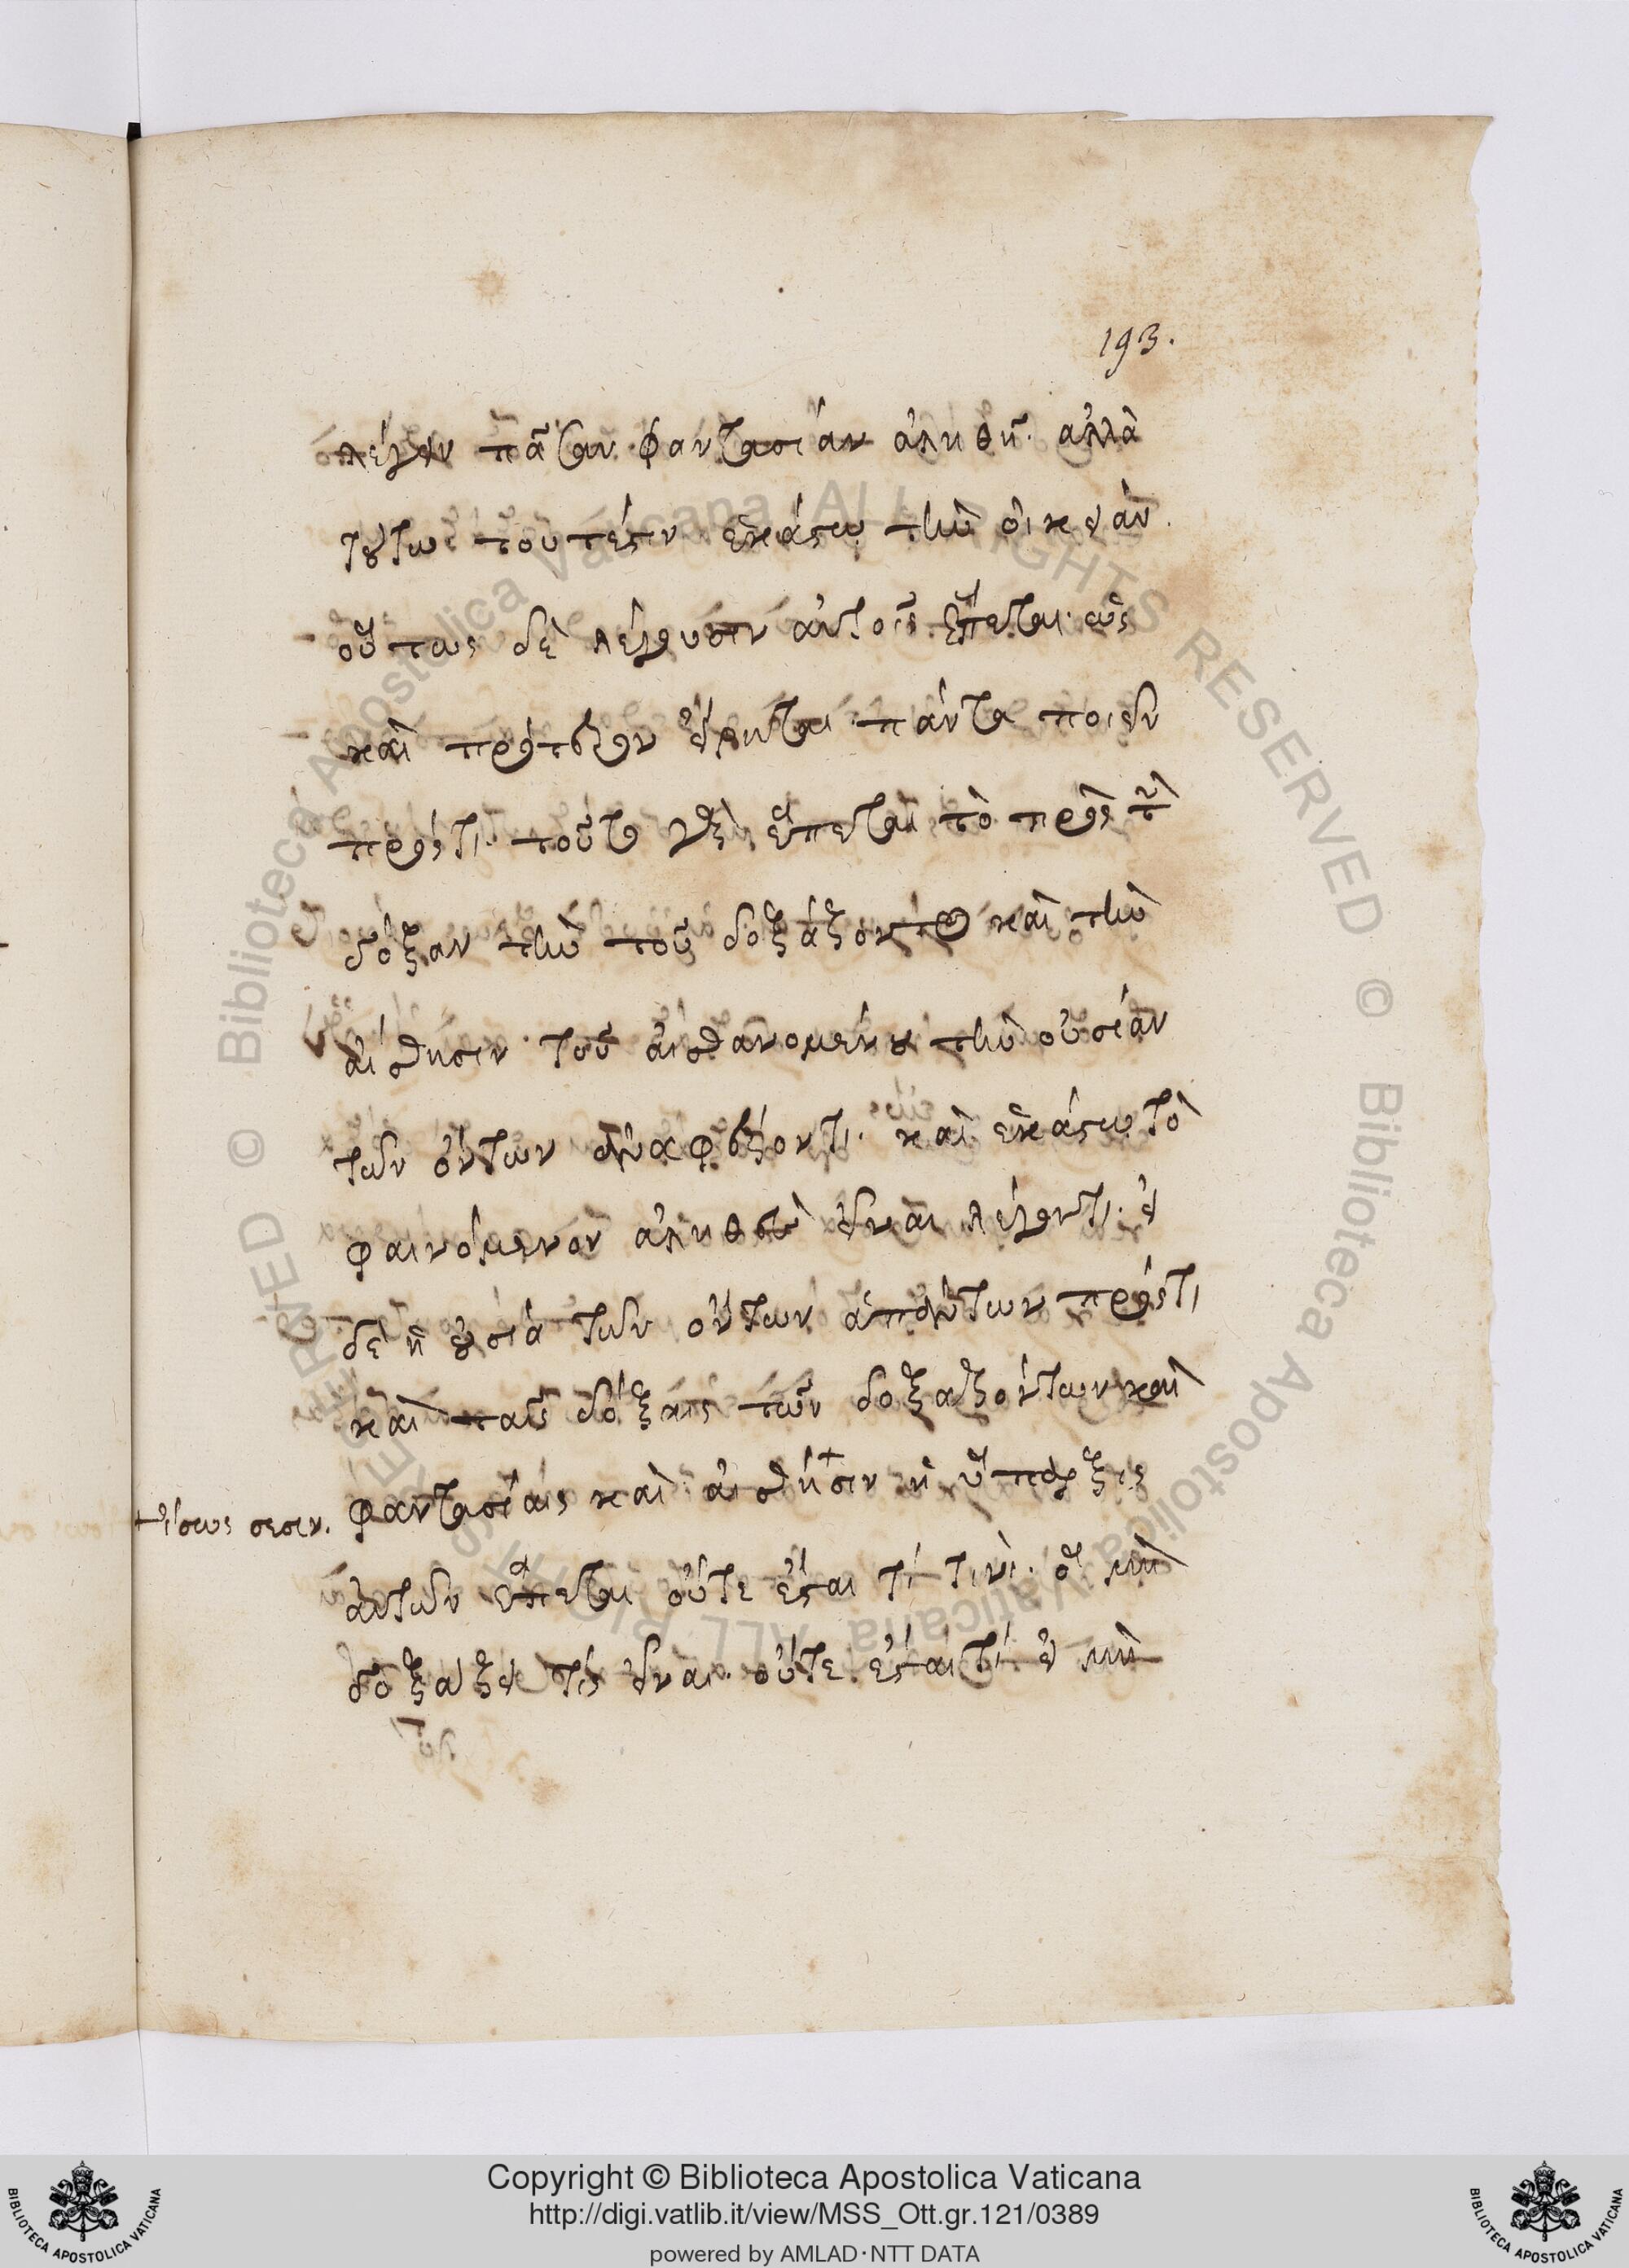 193.
λέγειν πᾶσαν φαντασίαν ἀληθῆ. ἀλλὰ
τούτω τουτέστιν ἑκάστω τὴν οἰκείαν.
οὕτως δὲ λέγουσιν αὐτοῖς ἕπεται. ὡς
καὶ πρότερον εἴρηται πάντα ποιεῖν
πρόστι. τοῦτο γὰρ ἕπεται τὸ πρὸς τὴν
δόξαν τὴν τοῦ δοξάζοντος καὶ τὴν
αἴσθησιν τοῦ αἰσθανομένου τὴν οὐσίαν
τῶν ὄντων ἀναφέροντι. καὶ ἑκάστω τὸ
φαινόμενον ἀληθὲς εἶναι λέγοντι. εἰ
δὲ ἡ οὐσία τῶν ὄντων ἁπάντων πρόστι
καὶ ταῖς δόξαις τῶν δοξαζόντων καὶ
φαντασίαις καὶ αἰσθή+σιν ἡ ὕπαρξις
+ ἴσως σεσιν.
αὐτῶν ἕπεται οὔτε ἔσται τί τινι. ὃ μὴ
δοξάζει τίς εἶναι. οὔτε ἔσται τί εἰ μὴ
Copyright © Biblioteca Apostolica Vaticana
http://digi.vatlib.it/view/MSS_Ott.gr.121/0389
powered by AMLAD·NTT DATA
BIBLIOTECA APOSTOLICA VATICANA
BIBLIOTECA APOSTOLICA VATICANA
© Biblioteca Apostolica Vaticana ALL RIGHTS RESERVED © Biblioteca Apostolica Vaticana ALL RIGHTS RESERVED